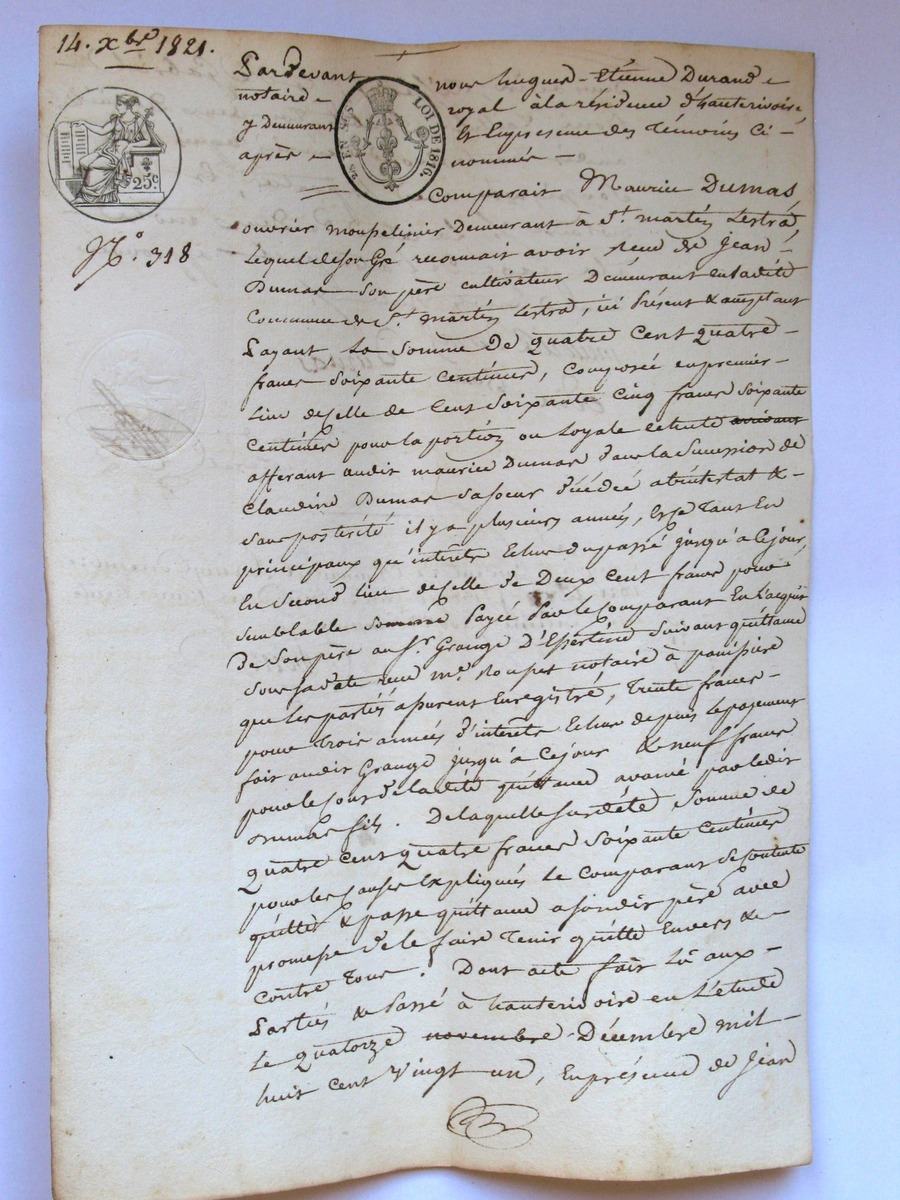 14. xbre 1821.
Pardevant nous hugues-Etienne Durand
notaire royal à la résidence d'hauterivoire,
y Demeurant & En presence des témoins Ci-
après nommés
25c
2s EN SUS LOI DE 1816.
Comparait Maurice Dumas
No. 318
ouvrier Demeurant à St. martin Lestra,
Lequel de son Gré reconnait avoir reçu de Jean
Dumas son père cultivateur Demeurant en ladite
Commune de St. martin Lestra, ici Présent & acceptant
Payant La Somme De quatre Cent quatre
francs Soixante Centimes, Composée en premier
Lieu de selle de Cent Soixante Cinq francs Soixante
Centimes pour la portion Légale
afferant audit maurice Dumas dans la Succession de
Claudine Dumas Sa soeur décédée abintestat &
Sans postérité il y a plusieurs années, Et ce Tant En
principaux qu'intérêts Echus du passé jusqu'à Ce jour,
En Second lieu de selle de Deux Cent francs pour
Semblable Somme Payée Par le Comparant En L'acquit
De Son père au Sr. Grange D'Essertine Suivant quittance
Sous sa date reçue me. notaire à panissière
que Les parties assurent Enregistré, Trente francs
pour Trois années d'intérêts Echus depuis Le payement
fait audit Grange jusqu'à Ce jour & neuf francs
pour le de la dite quittance avancé par ledit
Dumas fils. De laquelle susdite Somme de
quatre Cent quatre francs Soixante Centimes
pour les Causes Expliquées Le Comparant se contente
quitte & passe quittance a son dit père avec
promesse de le faire Tenir quitte Envers &
Contre Tous. Dont acte fait Lû aux
Parties & Passé à hauterivoire en L'étude
Le Quatorze novembre Décembre mil
huit Cent Vingt un, En présence de Jean